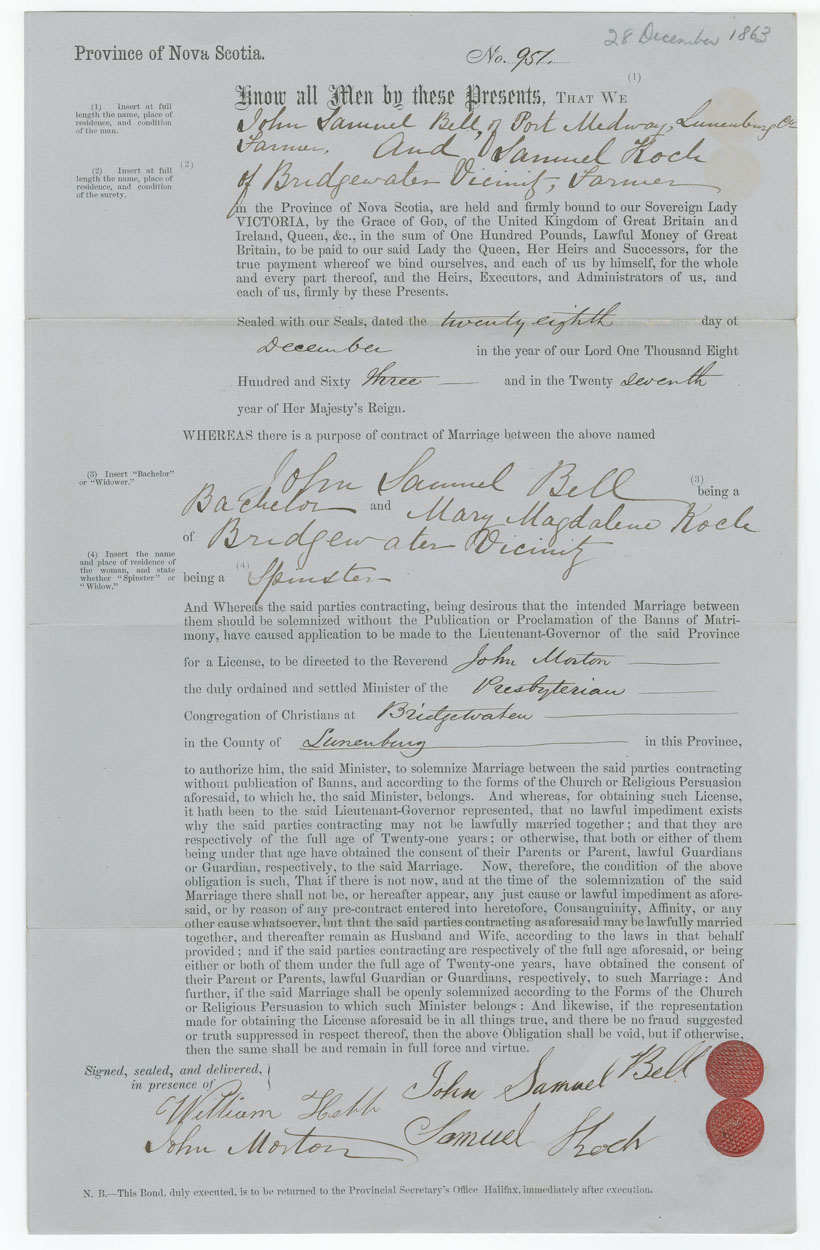 28 December 1863
Province of Nova Scotia.
No. 951.
(1)
Know all Men by these Presents, THAT WE
(1) Insert at full
length the name, place of
residence, and condition
of the man.
John Samuel Bell, of Port Medway, Lunenburg Co
Farmer, And Samuel Koch
(2) Insert at full
length the name, place of
residence, and condition
of the surety.
(2)
of Bridgewater Vicinity, Farmer
in the Province of Nova Scotia, are held and firmly bound to our Sovereign Lady
VICTORIA, by the Grace of GOD, of the United Kingdom of Great Britain and
Ireland, Queen, &c., in the sum of One Hundred Pounds, Lawful Money of Great
Britain, to be paid to our said Lady the Queen, Her Heirs and Successors, for the
true payment whereof we bind ourselves, and each of us by himself, for the whole
and every part thereof, and the Heirs, Executors, and Administrators of us, and
each of us, firmly by these Presents.
Sealed with our Seals, dated the twenty eighth day of
December in the year of our Lord One Thousand Eight
Hundred and Sixty three and in the Twenty seventh
year of Her Majesty's Reign.
WHEREAS there is a purpose of contract of Marriage between the above named
(3) Insert "Bachelor"
or "Widower."
John Samuel Bell (3) being a
Bachelor and Mary Magdalene Koch
of Bridgewater Vicinity
(4) Insert the name
and place of residence of
the woman, and state
whether "Spinster" or
"Widow."
being a (4) Spinster
And Whereas the said parties contracting, being desirous that the intended Marriage between
them should be solemnized without the Publication or Proclamation of the Banns of Matri-
mony, have caused application to be made to the Lieutenant-Governor of the said Province
for a License, to be directed to the Reverend John Morton
the duly ordained and settled Minister of the Presbyterian
Congregation of Christians at Bridgewater
in the County of Lunenburg in this Province,
to authorize him, the said Minister, to solemnize Marriage between the said parties contracting
without publication of Banns, and according to the forms of the Church or Religious Persuasion
aforesaid, to which he, the said Minister, belongs. And whereas, for obtaining such License,
it hath been to the said Lieutenant-Governor represented, that no lawful impediment exists
why the said parties contracting may not be lawfully married together; and that they are
respectively of the full age of Twenty-one years; or otherwise, that both or either of them
being under that age have obtained the consent of their Parents or Parent, lawful Guardians
or Guardian, respectively, to the said Marriage. Now, therefore, the condition of the above
obligation is such, That if there is not now, and at the time of the solemnization of the said
Marriage there shall not be, or hereafter appear, any just cause or lawful impediment as afore-
said, or by reason of any pre-contract entered into heretofore, Consanguinity, Affinity, or any
other cause whatsoever, but that the said parties contracting as aforesaid may be lawfully married
together, and thereafter remain as Husband and Wife, according to the laws in that behalf
provided; and if the said parties contracting are respectively of the full age aforesaid, or being
either or both of them under the full age of Twenty-one years, have obtained the consent of
their Parent or Parents, lawful Guardian or Guardians, respectively, to such Marriage: And
further, if the said Marriage shall be openly solemnized according to the Forms of the Church
or Religious Persuasion to which such Minister belongs: And likewise, if the representation
made for obtaining the License aforesaid be in all things true, and there be no fraud suggested
or truth suppressed in respect thereof, then the above Obligation shall be void, but if otherwise,
then the same shall be and remain in full force and virtue.
Signed, sealed, and delivered,
in presence of
John Samuel Bell
William Hebb
Samuel Koch
John Morton
N. B.—This Bond, duly executed, is to be returned to the Provincial Secretary's Office Halifax, immediately after execution.